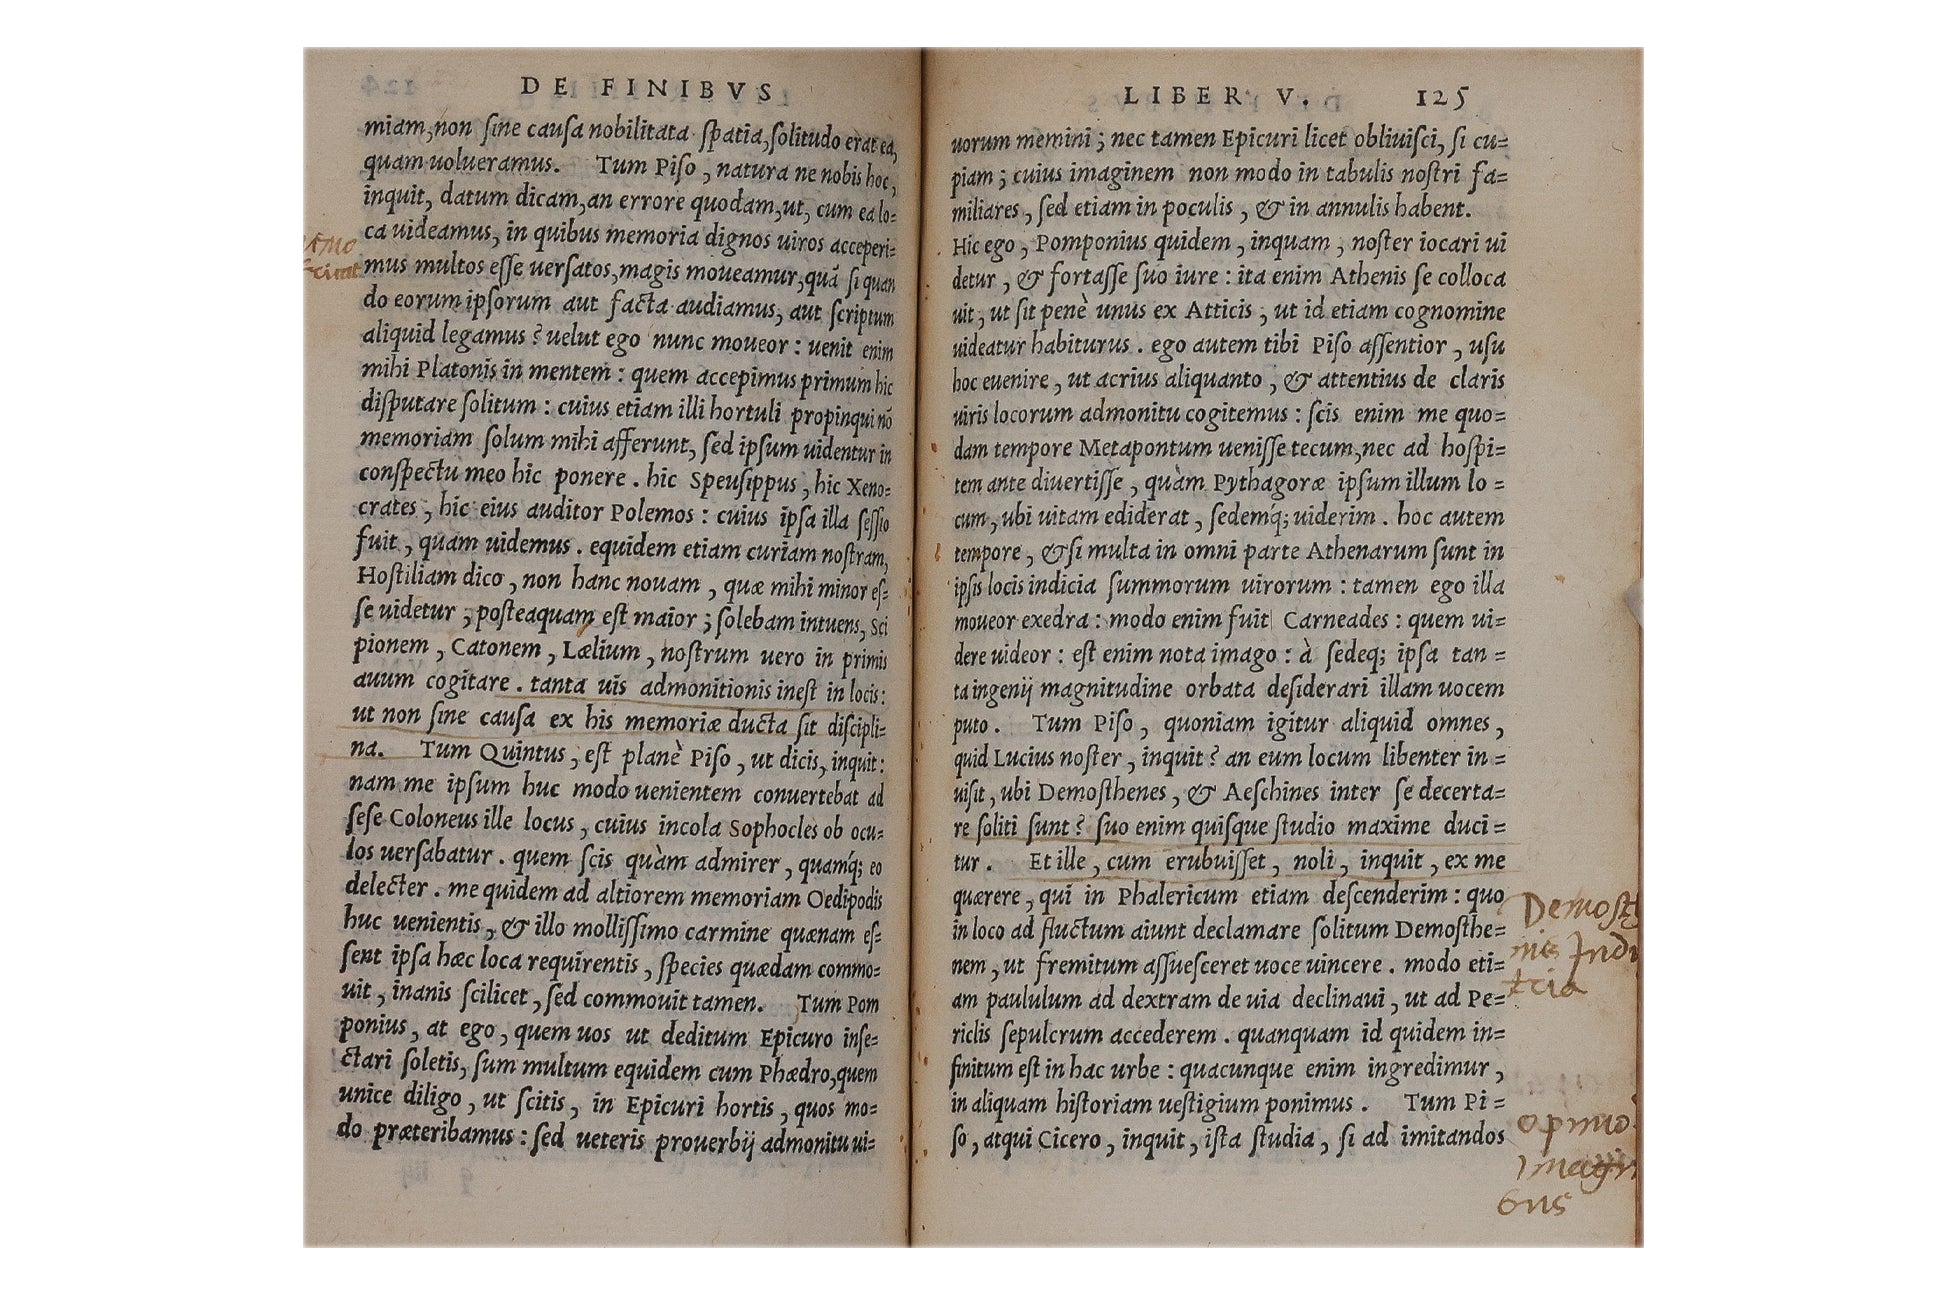 DE FINIBVS
miam, non ſine cauſa nobilitata ſpatia, ſolitudo erat ea,
quam uolueramus. Tum Piſo, natura ne nobis hoc,
inquit, datum dicam, an errore quodam, ut, cum ea lo=
ca uideamus, in quibus memoria dignos uiros acceperi=
mus multos eſſe uerſatos, magis moueamur, quā ſi quan
do eorum ipſorum aut facta audiamus, aut ſcriptum
aliquid legamus? uelut ego nunc moueor: uenit enim
mihi Platonis in mentem: quem accepimus primum hic
diſputare ſolitum: cuius etiam illi hortuli propinqui nō
memoriam ſolum mihi afferunt, ſed ipſum uidentur in
conſpectu meo hic ponere. hic Speuſippus, hic Xeno=
crates, hic eius auditor Polemos: cuius ipſa illa ſeſſio
fuit, quam uidemus. equidem etiam curiam noſtram,
Hoſtiliam dico, non hanc nouam, quæ mihi minor eſ=
ſe uidetur, poſteaquam eſt maior; ſolebam intuens, Sci
pionem, Catonem, Lælium, noſtrum uero in primis
auum cogitare. tanta uis admonitionis ineſt in locis:
ut non ſine cauſa ex his memoriæ ducta ſit diſcipli=
na. Tum Quintus, eſt planè Piſo, ut dicis, inquit:
nam me ipſum huc modo uenientem conuertebat ad
ſeſe Coloneus ille locus, cuius incola Sophocles ob ocu=
los uerſabatur. quem ſcis quàm admirer, quamq́; eo
delecter. me quidem ad altiorem memoriam Oedipodis
huc uenientis, & illo molliſſimo carmine quænam eſ=
ſent ipſa hæc loca requirentis, ſpecies quædam commo=
uit, inanis ſcilicet, ſed commouit tamen. Tum Pom
ponius, at ego, quem uos ut deditum Epicuro inſe=
ctari ſoletis, ſum multum equidem cum Phædro, quem
unice diligo, ut ſcitis, in Epicuri hortis, quos mo=
do præteribamus: ſed ueteris prouerbij admonitu ui=
LIBER V. 125
uorum memini; nec tamen Epicuri licet obliuiſci, ſi cu=
piam; cuius imaginem non modo in tabulis noſtri fa=
miliares, ſed etiam in poculis, & in annulis habent.
Hic ego, Pomponius quidem, inquam, noſter iocari ui
detur, & fortaſſe ſuo iure: ita enim Athenis ſe colloca
uit, ut ſit penè unus ex Atticis, ut id etiam cognomine
uideatur habiturus. ego autem tibi Piſo aſſentior, uſu
hoc euenire, ut acrius aliquanto, & attentius de claris
uiris locorum admonitu cogitemus: ſcis enim me quo=
dam tempore Metapontum ueniſſe tecum, nec ad hoſpi=
tem ante diuertiſſe, quàm Pythagoræ ipſum illum lo=
cum, ubi uitam ediderat, ſedemq́; uiderim. hoc autem
tempore, & ſi multa in omni parte Athenarum ſunt in
ipſis locis indicia ſummorum uirorum: tamen ego illa
moueor exedra: modo enim fuit Carneades: quem ui=
dere uideor: eſt enim nota imago: à ſedeq; ipſa tan=
ta ingenij magnitudine orbata deſiderari illam uocem
puto. Tum Piſo, quoniam igitur aliquid omnes,
quid Lucius noſter, inquit? an eum locum libenter in=
uiſit, ubi Demoſthenes, & Aeſchines inter ſe decerta=
re ſoliti ſunt? ſuo enim quiſque ſtudio maxime duci=
tur. Et ille, cum erubuiſſet, noli, inquit, ex me
quærere, qui in Phalericum etiam deſcenderim: quo
in loco ad fluctum aiunt declamare ſolitum Demoſthe=
nem, ut fremitum aſſueſceret uoce uincere. modo eti=
am paululum ad dextram de uia declinaui, ut ad Pe=
riclis ſepulcrum accederem. quanquam id quidem in=
finitum eſt in hac urbe: quacunque enim ingredimur,
in aliquam hiſtoriam ueſtigium ponimus. Tum Pi=
ſo, atqui Cicero, inquit, iſta ſtudia, ſi ad imitandos
Demoſth
nis
bus